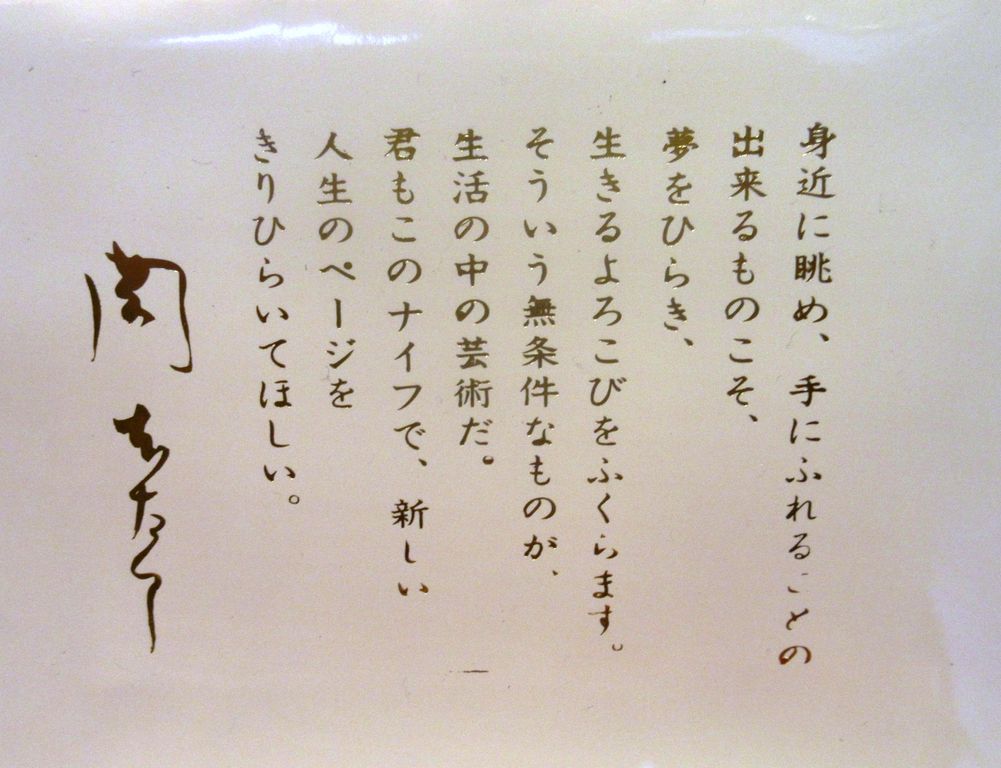 身近に眺め、手にふれることの
出来るものこそ、
夢をひらき、
生きるよろこびをふくらます。
そういう無条件なものが、
生活の中の芸術だ。
君もこのナイフで、新しい
人生のページを
きりひらいてほしい。